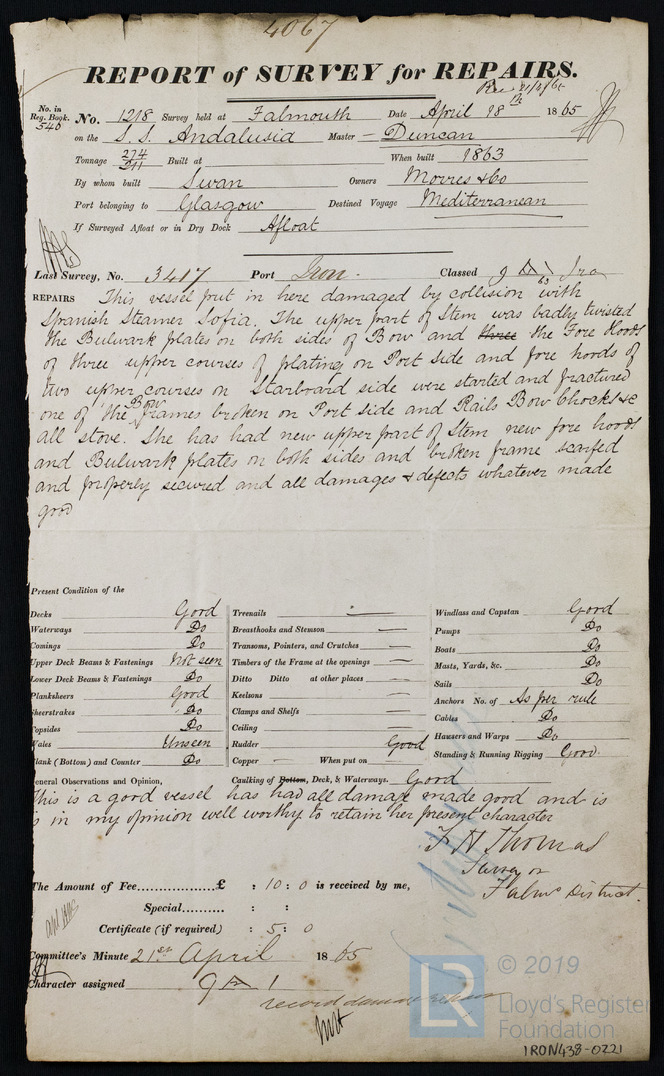 4067
REPORT of SURVEY for REPAIRS.
Rec 21/4/65
No. in Reg. Book. 540
No. 1218 Survey held at Falmouth Date April 18th 1865
on the S.S. Andalusia Master - Duncan
Tonnage 274 211 Built at When built 1863
By whom built Swan Owners Movres & Co
Port belonging to Glasgow Destined Voyage Mediterranean
If Surveyed Afloat or in Dry Dock Afloat
Last Survey, No. 3417 Port Iron. Classed 9 A 63 Iro
REPAIRS This vessel put in here damaged by collision with
Spanish Steamer Sofia. The upper part of Stem was badly twisted
the Bulwark plates on both sides of Bow and three the Fore Hoods
of three upper courses of plating on Port Side and fore hoods of
two upper courses on Starboard side were started and fractured
one of the Bow frames broken on Port side and Rails Bow Chocks &c
all stove. She has had new upper part of Stem new fore hoods
and Bulwark plates on both sides and broken frame scarfed
and properly secured and all damages & defects whatever made
good
Present Condition of the
Decks Good
Waterways Do
Comings Do
Upper Deck Beams & Fastenings Not seen
Lower Deck Beams & Fastenings Do
Planksheers Good
Sheerstrakes Do
Topsides Do
Wales Unseen
Plank (Bottom) and Counter Do
Treenails —
Breasthooks and Stemson —
Transoms, Pointers, and Crutches —
Timbers of the Frame at the openings —
Ditto Ditto at other places —
Keelsons —
Clamps and Shelfs —
Ceiling —
Rudder Good
Copper - When put on
Caulking of Bottom, Deck, & Waterways. Good
Windlass and Capstan Good
Pumps Do
Boats Do
Masts, Yards, &c. Do
Sails Do
Anchors No. of As per rule
Cables Do
Hausers and Warps Do
Standing & Running Rigging Good
General Observations and Opinion,
This is a good vessel has had all damage made good and is
is in my opinion well worthy to retain her present character
F N Thomas
Surveyor
Falmo District.
The Amount of Fee................£ : 10 : 0 is received by me,
Special.......... : :
Certificate (if required) : 5 : 0
Committee's Minute 21st April 1865
Character assigned 9 A 1
record damage repairs
© 2019
LR Lloyd's Register
Foundation
IRON438-0221